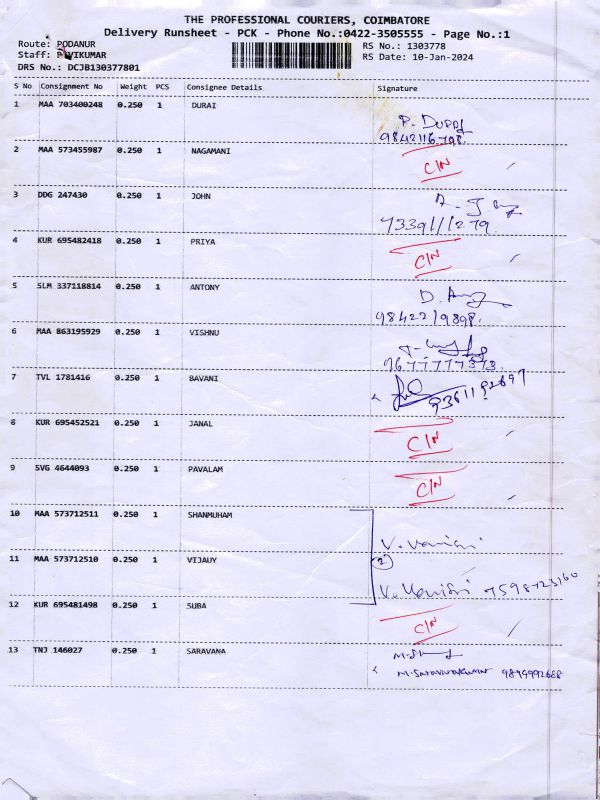 THE PROFESSIONAL COURIERS, COIMBATORE
Delivery Runsheet - PCK - Phone No.:0422-3505555 - Page No.:1
Route: PODANUR
RS No.: 1303778
Staff: P VIKUMAR
RS Date: 10-Jan-2024
DRS No.: DCJB130377801
S No Consignment No Weight PCS Consignee Details Signature
1 MAA 703400248 0.250 1 DURAI
P. DURAI
9842116798.
2 MAA 573455987 0.250 1 NAGAMANI
C/N
3 DDG 247430 0.250 1 JOHN
7339111279
4 KUR 695482418 0.250 1 PRIYA
C/N
5 SLM 337118814 0.250 1 ANTONY
9842219898.
6 MAA 863195929 0.250 1 VISHNU
9677777373
7 TVL 1781416 0.250 1 BAVANI
9361192697
8 KUR 695452521 0.250 1 JANAL
C/N
9 SVG 4644093 0.250 1 PAVALAM
C/N
10 MAA 573712511 0.250 1 SHANMUHAM
V. Vanisri
11 MAA 573712510 0.250 1 VIJAUY
2
V. Vanisri 7598723160
12 KUR 695481498 0.250 1 SUBA
C/N
13 TNJ 146027 0.250 1 SARAVANA
M. Saravanakumar